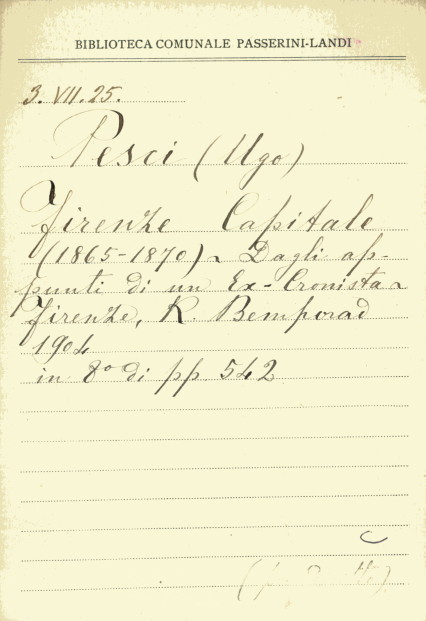 BIBLIOTECA COMUNALE PASSERINI-LANDI
3. VII. 25.
Pesci (Ugo)
Firenze Capitale
(1865-1870) ~ Dagli ap-
punti di un Ex-Cronista ~
Firenze, R. Bemporad
1904
in 8º di pp 542